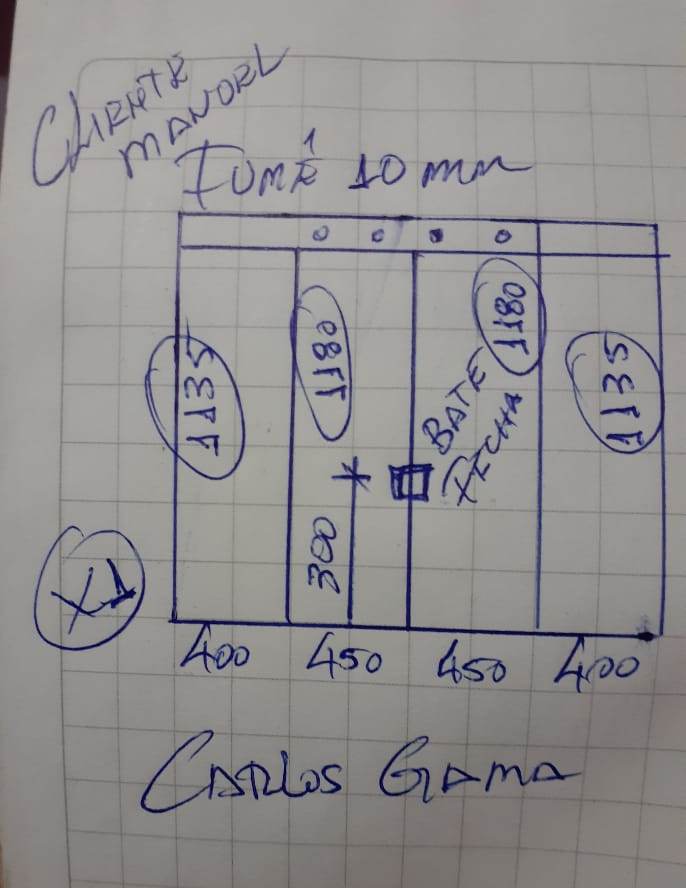 CLIENTE
MANOEL
FUMÊ 10 mm
1135
1180
1180
1135
BATE
FECHA
300
X1
400 450 450 400
CARLOS GAMA